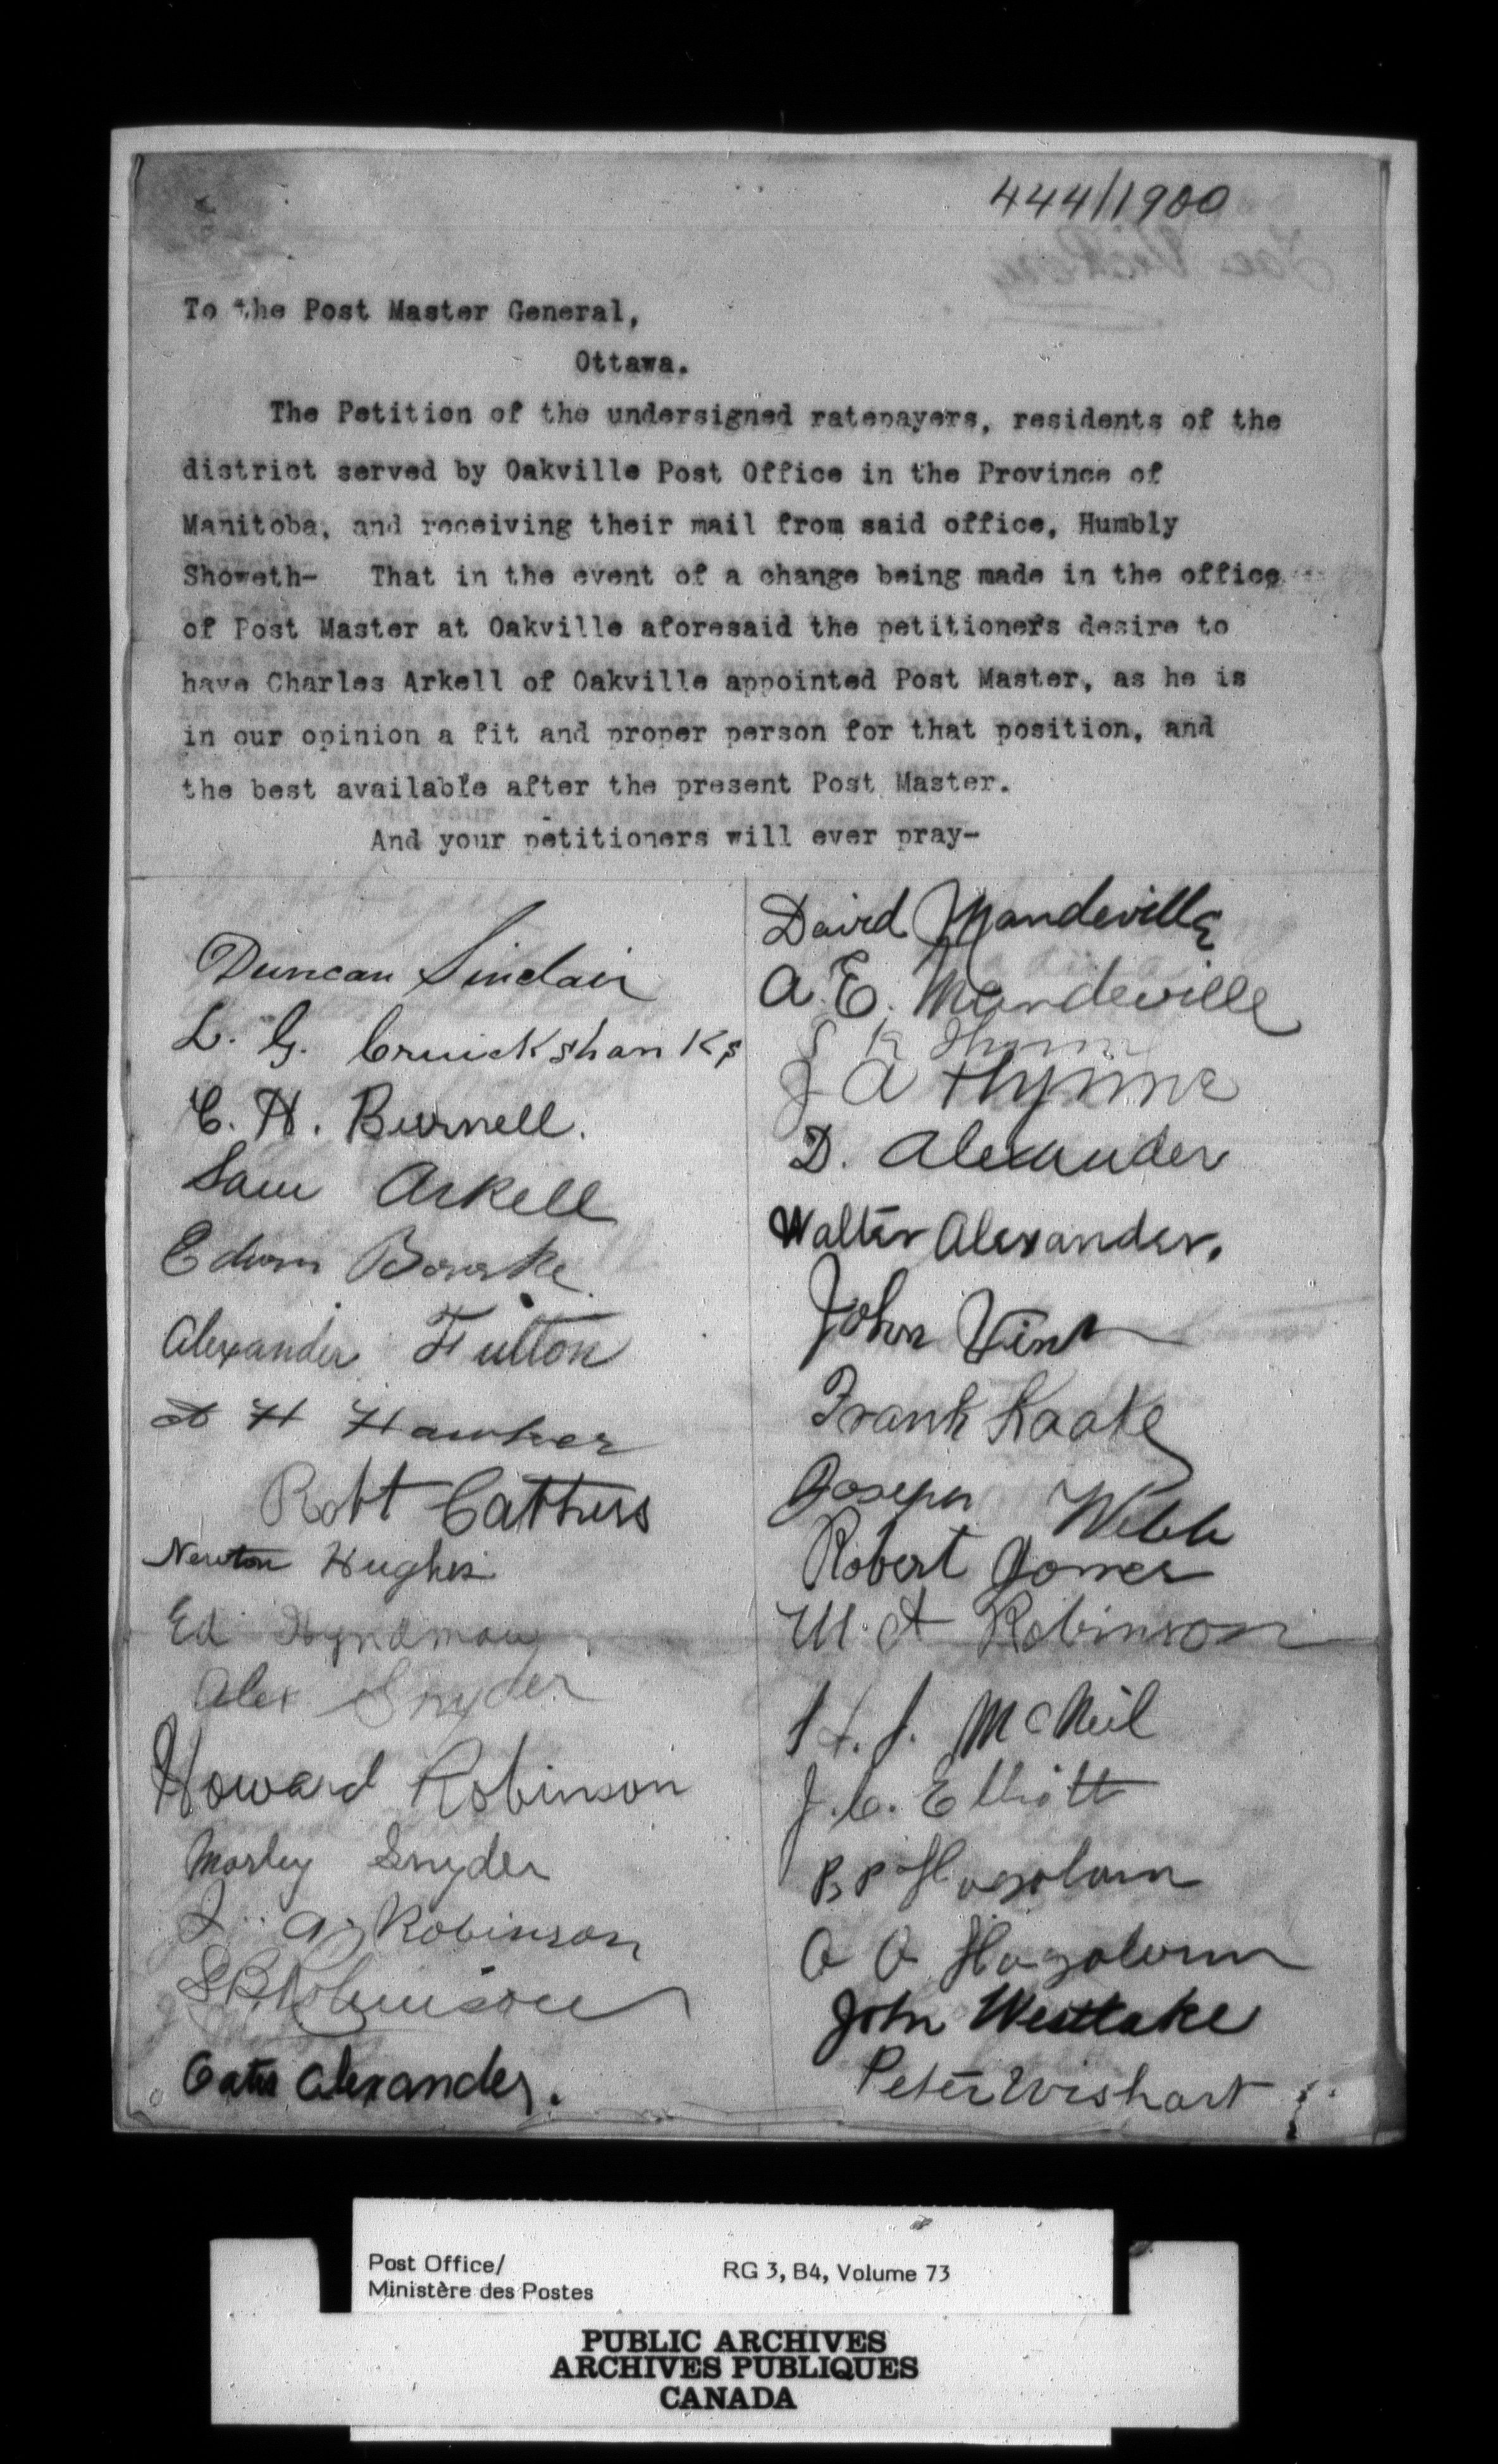 444/1900
To the Post Master General,
Ottawa.
The Petition of the undersigned ratepayers, residents of the
district served by Oakville Post Office in the Province of
Manitoba, and receiving their mail from said office, Humbly
Showeth- That in the event of a change being made in the office
of Post Master at Oakville aforesaid the petitioners desire to
have Charles Arkell of Oakville appointed Post Master, as he is
in our opinion a fit and proper person for that position, and
the best available after the present Post Master.
And your petitioners will ever pray-
Duncan Sinclair
L. G. Cruickshanks
C. H. Burnell.
Sam Arkell
Edwin Bourke
Alexander Fulton
A H Hawker
Robt Cathers
Newton Hughes
Ed Hyndman
Alex Snyder
Howard Robinson
Morley Snyder
J. A. Robinson
S B Robinson
Alexander.
David Mandeville
A. E. Mandeville
J A Thynne
D. Alexander
Walter Alexander.
John Vint
Frank Kaake
Joseph Webb
Robert Jones
W. A Robinson
J. McNeil
J. C. Elliott
John Westlake
Peter Wishart
Post Office/
Ministère des Postes
RG 3, B4, Volume 73
PUBLIC ARCHIVES
ARCHIVES PUBLIQUES
CANADA